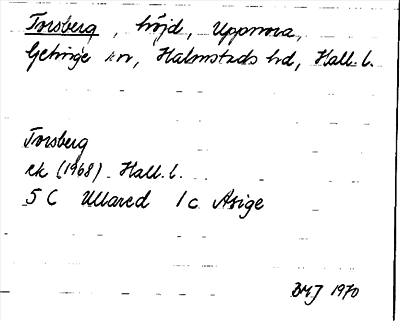 Torsberg, höjd, Uppnora,
Getinge sn, Halmstads hd, Hall. l.
Torsberg
ek (1968) Hall. l.
5 C Ullared 1 c Asige
BMJ 1970